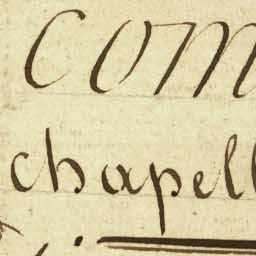 com
chapell